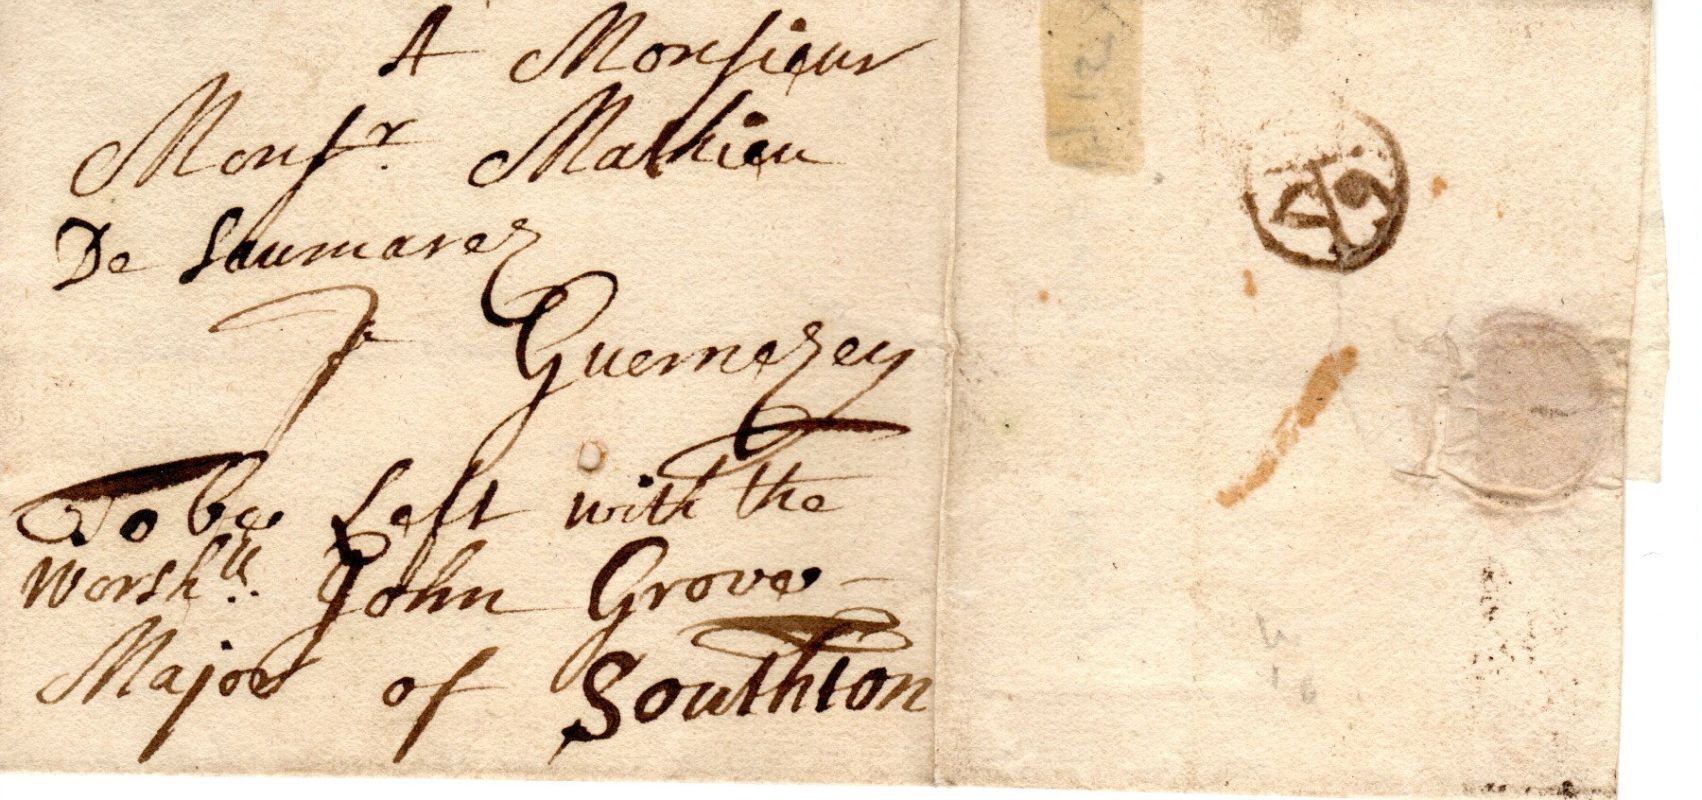 A Monsieur
Monsr. Mathieu
De Saumarez
Guernezey
To be Left with the
Worshll. John Grove
Major of Southton